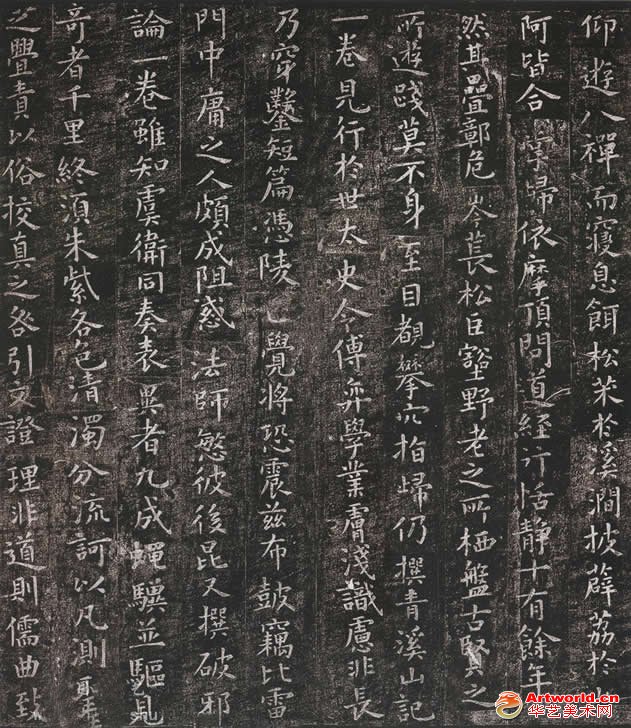 仰遊八禪而寢息餌松朮於溪澗披薜荔於
阿皆合掌歸依摩頂問道經行恬靜十有餘年
然其疊鄣危岑萇松巨壑野老之所栖盤古賢之
所遊踐莫不身至目覩拏穴拍歸仍撰青溪山記
一卷見行於世太史令傅弈學業膚淺識慮非長
乃穿鑿短篇憑陵正覺將恐震茲布鼓竊比雷
門中庸之人頗成阻惑法師慜彼後昆又撰破邪
論一卷雖知虞衛同奏表異者九成蠅驥並驅見
奇者千里終須朱紫各色清濁分流訶以凡測聖
之舋責以俗挍真之咎引文證理非道則儒曲致
Artworld.cn
华艺美术网